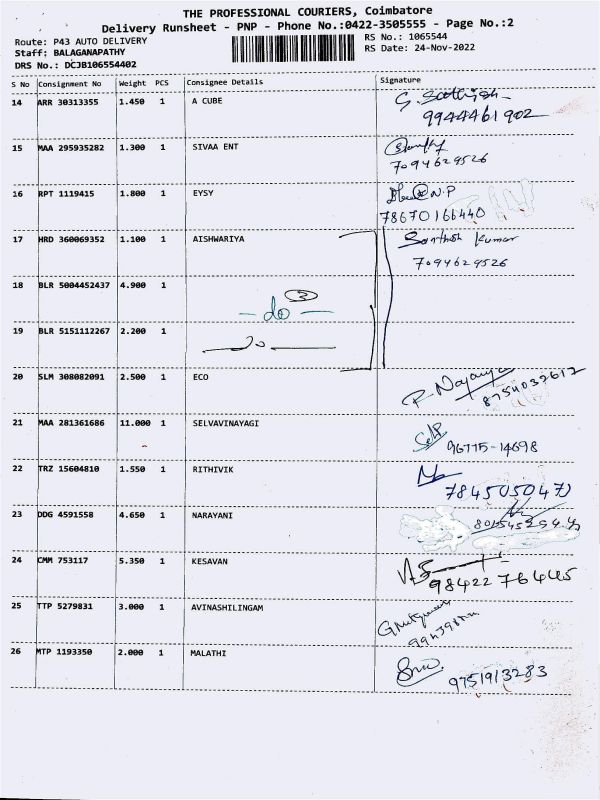 THE PROFESSIONAL COURIERS, Coimbatore
Delivery Runsheet - PNP - Phone No.:0422-3505555 - Page No.:2
Route: P43 AUTO DELIVERY
Staff: BALAGANAPATHY
DRS No.: DCJB106554402
RS No.: 1065544
RS Date: 24-Nov-2022
S No Consignment No Weight PCS Consignee Details Signature
14 ARR 30313355 1.450 1 A CUBE
9944461902
15 MAA 295935282 1.300 1 SIVAA ENT
7094629526
16 RPT 1119415 1.800 1 EYSY
78670166440
17 HRD 360069352 1.100 1 AISHWARIYA Santhosh Kumar
7094629526
18 BLR 5004452437 4.900 1
3
- do -
19 BLR 5151112267 2.200 1
20 SLM 308082091 2.500 1 ECO
21 MAA 281361686 11.000 1 SELVAVINAYAGI
96775-14698
22 TRZ 15604810 1.550 1 RITHIVIK
7845050470
23 DDG 4591558 4.650 1 NARAYANI
24 CMM 753117 5.350 1 KESAVAN
9842276445
25 TTP 5279831 3.000 1 AVINASHILINGAM
26 MTP 1193350 2.000 1 MALATHI
9751913283